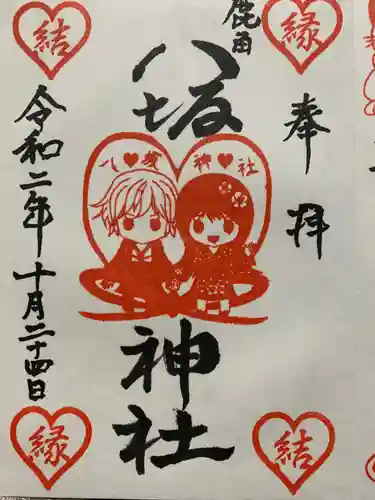 奉拝
縁
鹿角
八坂神社
八♥坂 神♥社
結
令和二年十月二十四日
縁
結